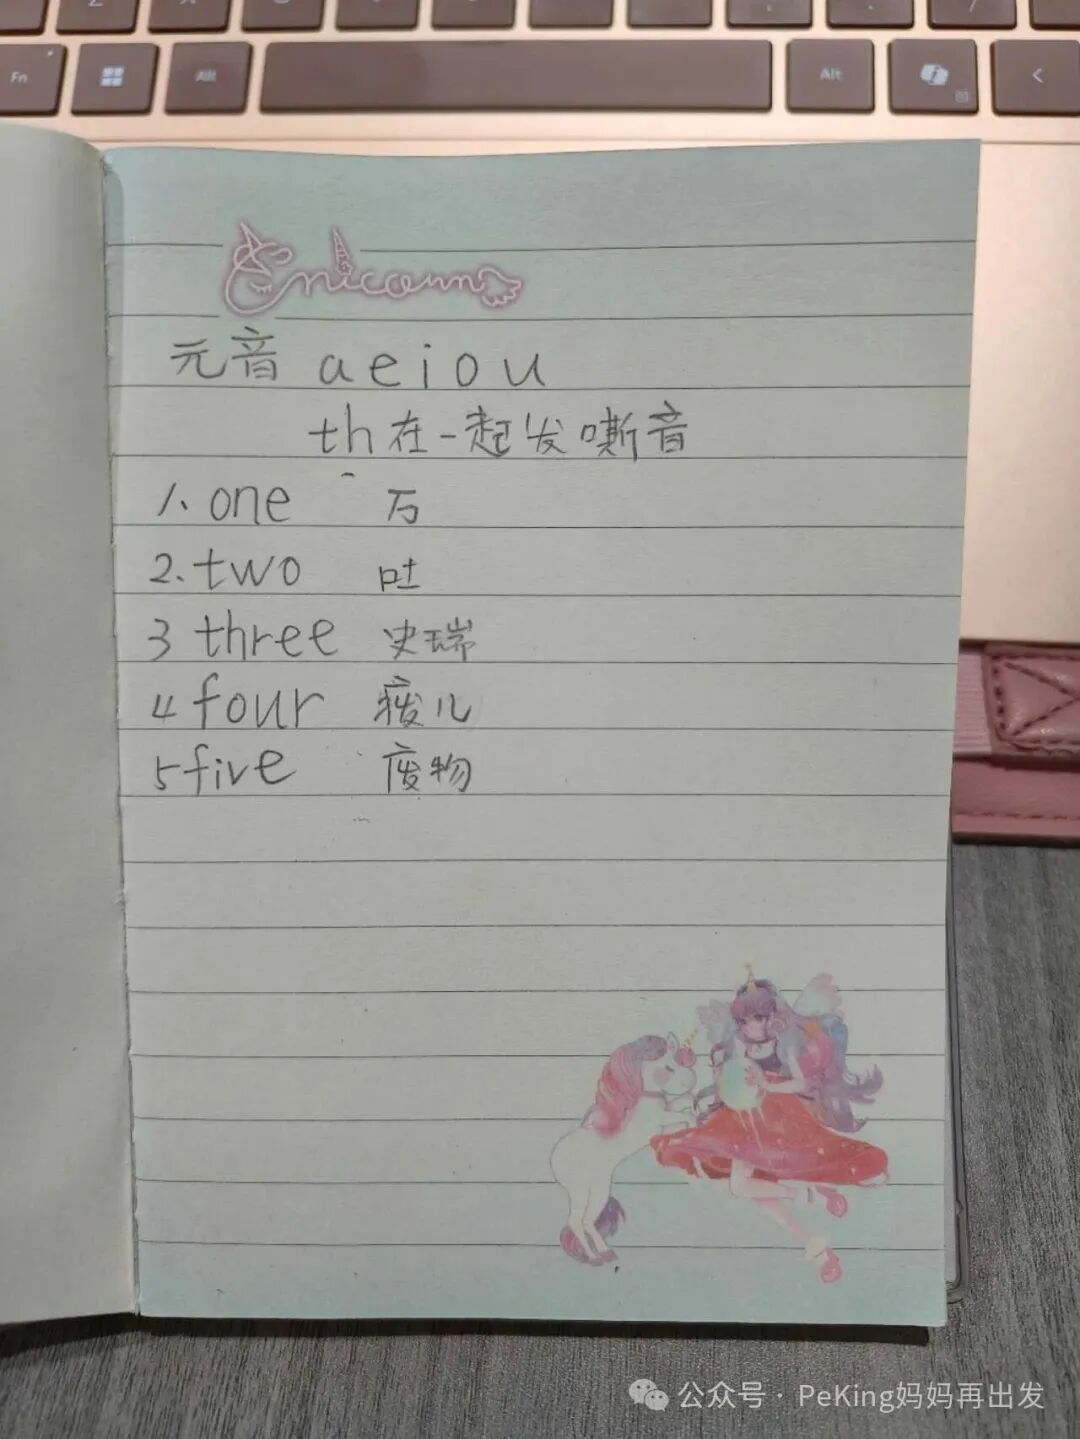 Fn Alt Alt <
Unicorn
元音 a e i o u
th在一起发嘶音
1、one 万
2、two 吐
3 three 史瑞
4 four 儿
5 five 废物
公众号·PeKing妈妈再出发